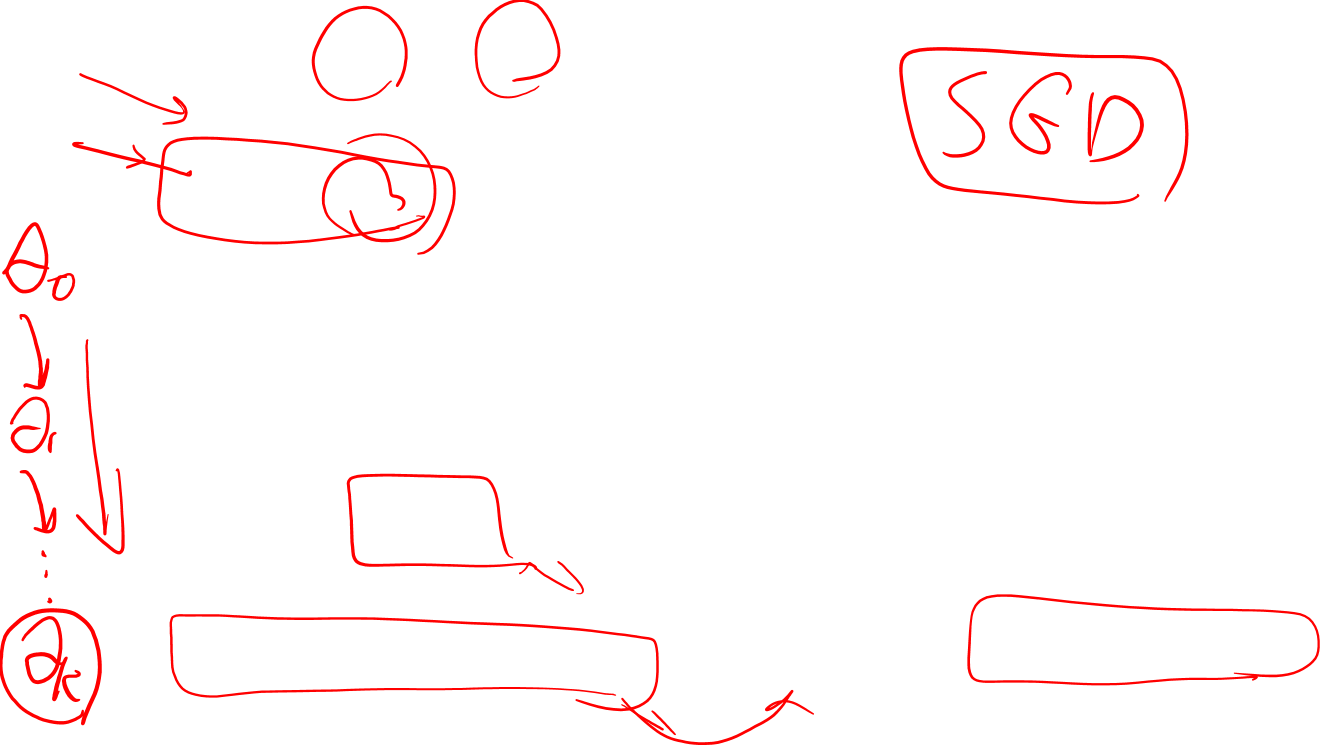 SGD
θ₀
θ₁
⋮
θₖ